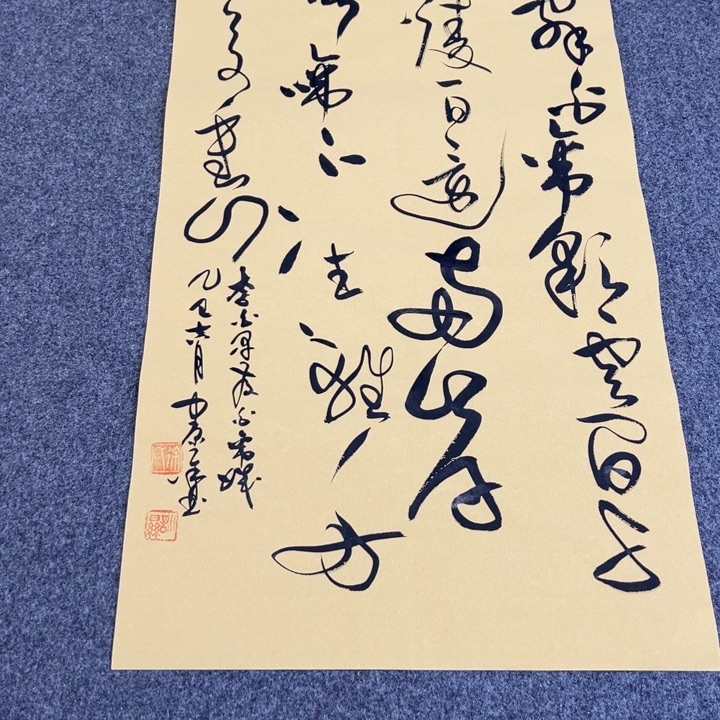 辭白帝彩雲間千
陵一日還兩岸
啼不住輕舟
萬重山
李白早發白帝城
乙巳六月